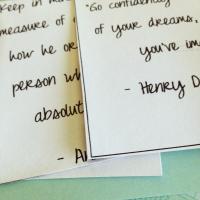 keep in
measure of
how he or
person wh
absolut
- A
"Go confidently
of your dreams,
you've im
- HENRY D